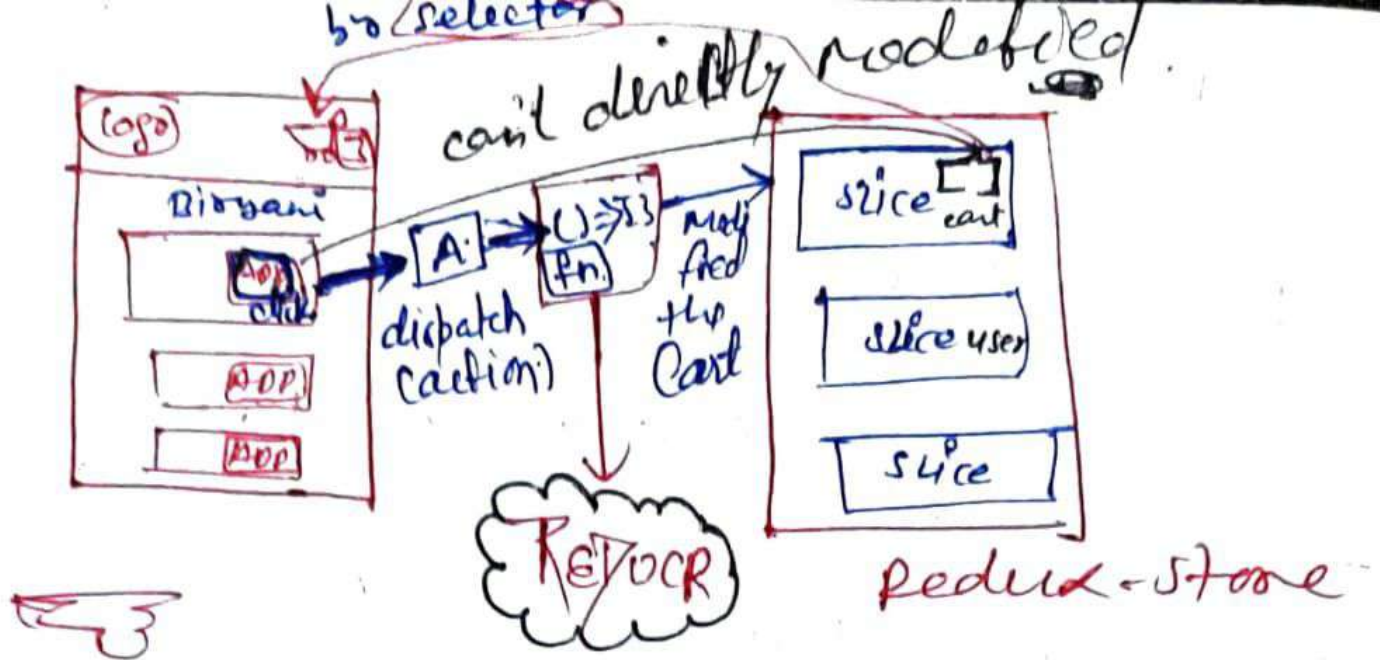 by selector
can't directly modified.
Logo
Biryani
ADD
click
ADD
ADD
A.
dispatch
(action)
() => {}
fn.
modi
fied
the
Cart
REDUCR
slice
cart
slice user
slice
Redux - Store